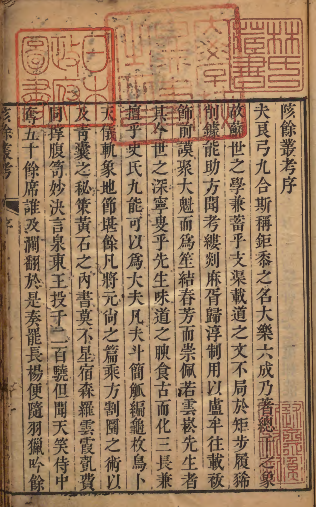 林氏藏書
日本政府圖書
陔餘叢考序
夫艮弓九合斯稱鉅黍之名大樂六成乃著總干之象
故蘇世之學兼蓄乎支渠載道之文不局於矩步履豨
削鐻能助方聞考縷剡麻胥歸淳制用以盧牟往載祓
飾前謨聚大魁而爲笙結春芳而崇佩若雲崧先生者
其今世之深寧叟乎先生味道之腴食古而化三長兼
擅乎史氏九能可以爲大夫凡夫斗簡觚編龜枚鳥卜
天儀斬象地節堪餘凡將元尚之篇乘方割圜之術以
及青囊之秘笈黃石之內書莫不星宿森羅雲霞亂費
同撑腹笥妙決言泉東王投千二百驍但聞天笑侍中
奪五十餘席誰及瀾翻於是奏罷長楊便隨羽獵吟餘
陔餘叢考 序